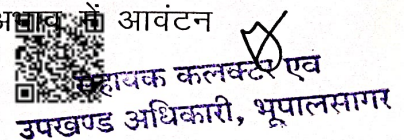 में आवंटन
सहायक कलक्टर एवं
उपखण्ड अधिकारी, भूपालसागर